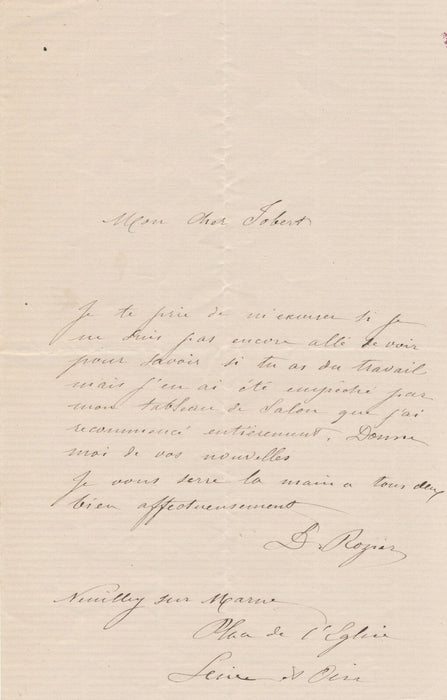 Mon cher Jobert
Je te prie de m'excuser si je
ne suis pas encore allé te voir
pour savoir si tu as du travail
mais j'en ai été empêché par
mon tableau de Salon que j'ai
recommencé entièrement. Donne
moi de vos nouvelles
Je vous serre la main a tous deux
bien affectueusement
D. Rozier
Neuilly sur Marne
Place de l'Eglise
Seine et Oise